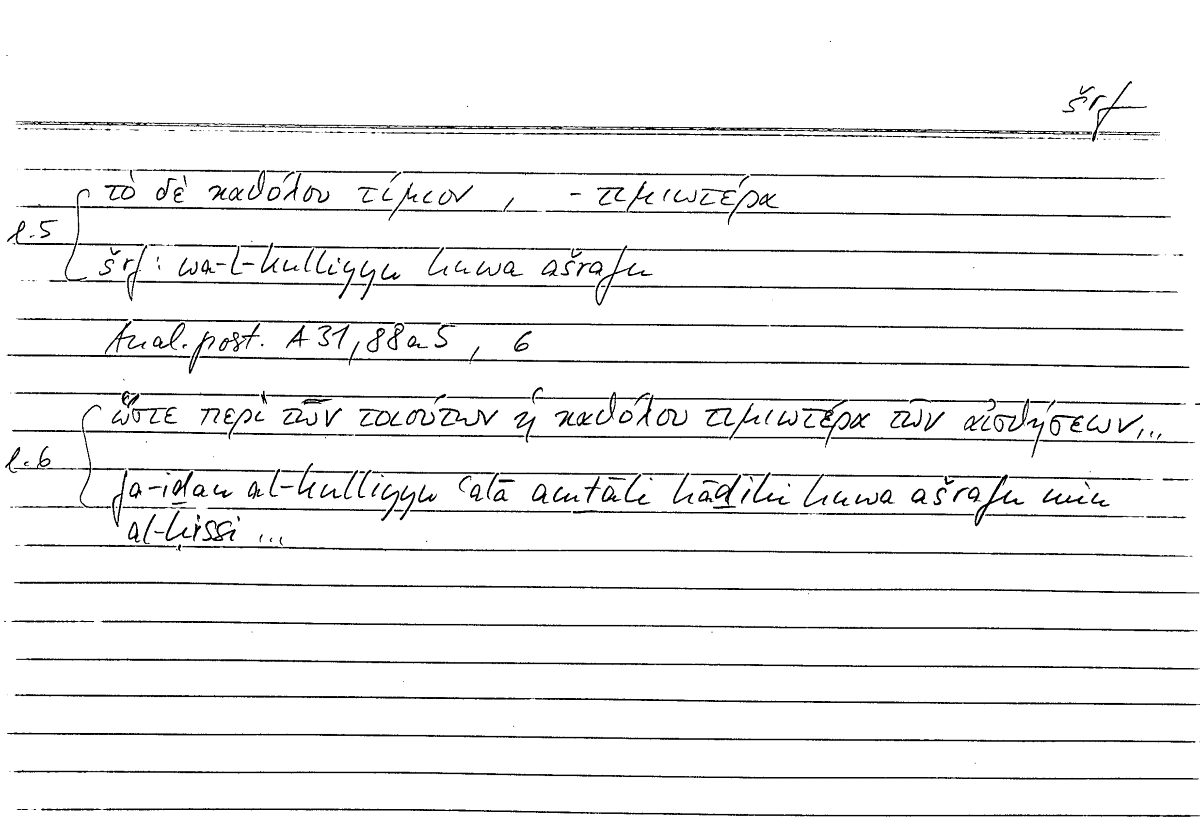 šrf
τὸ δὲ καθόλου τίμιον, - τιμιωτέρα
l.5
šrf: wa-l-kulliyyu huwa ašrafu
Anal.post. A 31, 88a5, 6
ὥστε περὶ τῶν τοιούτων ἡ καθόλου τιμιωτέρα τῶν αἰσθήσεων...
l.6
fa-iḏan al-kulliyyu ʿalā amṯāli hāḏihi huwa ašrafu min
al-ḥissi ...